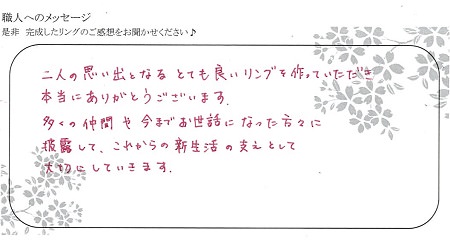 職人へのメッセージ
是非 完成したリングのご感想をお聞かせください♪
二人の思い出となる とても良いリングを作っていただき
本当にありがとうございます.
多くの仲間や今までお世話になった方々に
披露して、これからの新生活の支えとして
大切にしていきます.